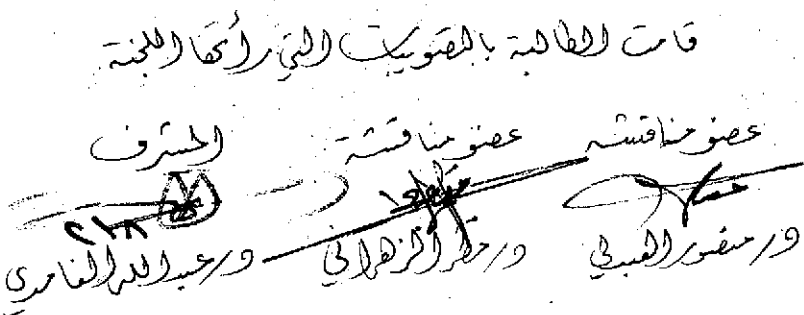 قامت الطالبة بالتصويبات التي رأتها اللجنة
عضو مناقشة عضو مناقشة المشرف
د/ منصور العبدلي د/ مطر الزهراني د/ عبد الله الغامدي